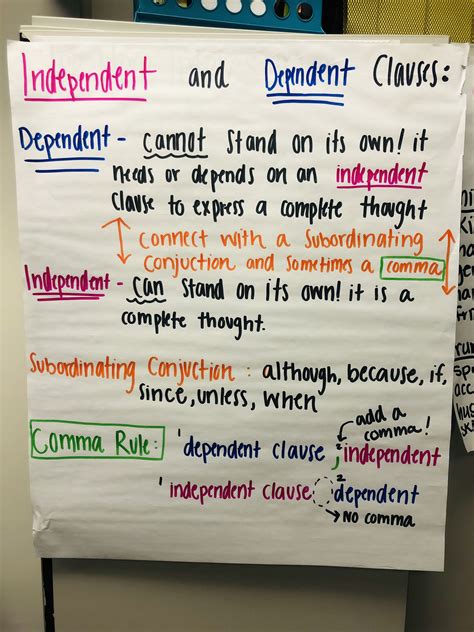 Independent and Dependent Clauses:
Dependent - cannot stand on its own! it
needs or depends on an independent
clause to express a complete thought
connect with a subordinating
conjuction and sometimes a comma
Independent - can stand on its own! it is a
complete thought.
Subordinating Conjuction : although, because, if,
since, unless, when
add a
comma!
Comma Rule: 1 dependent clause , 2 independent
1 independent clause 2 dependent
→ No comma